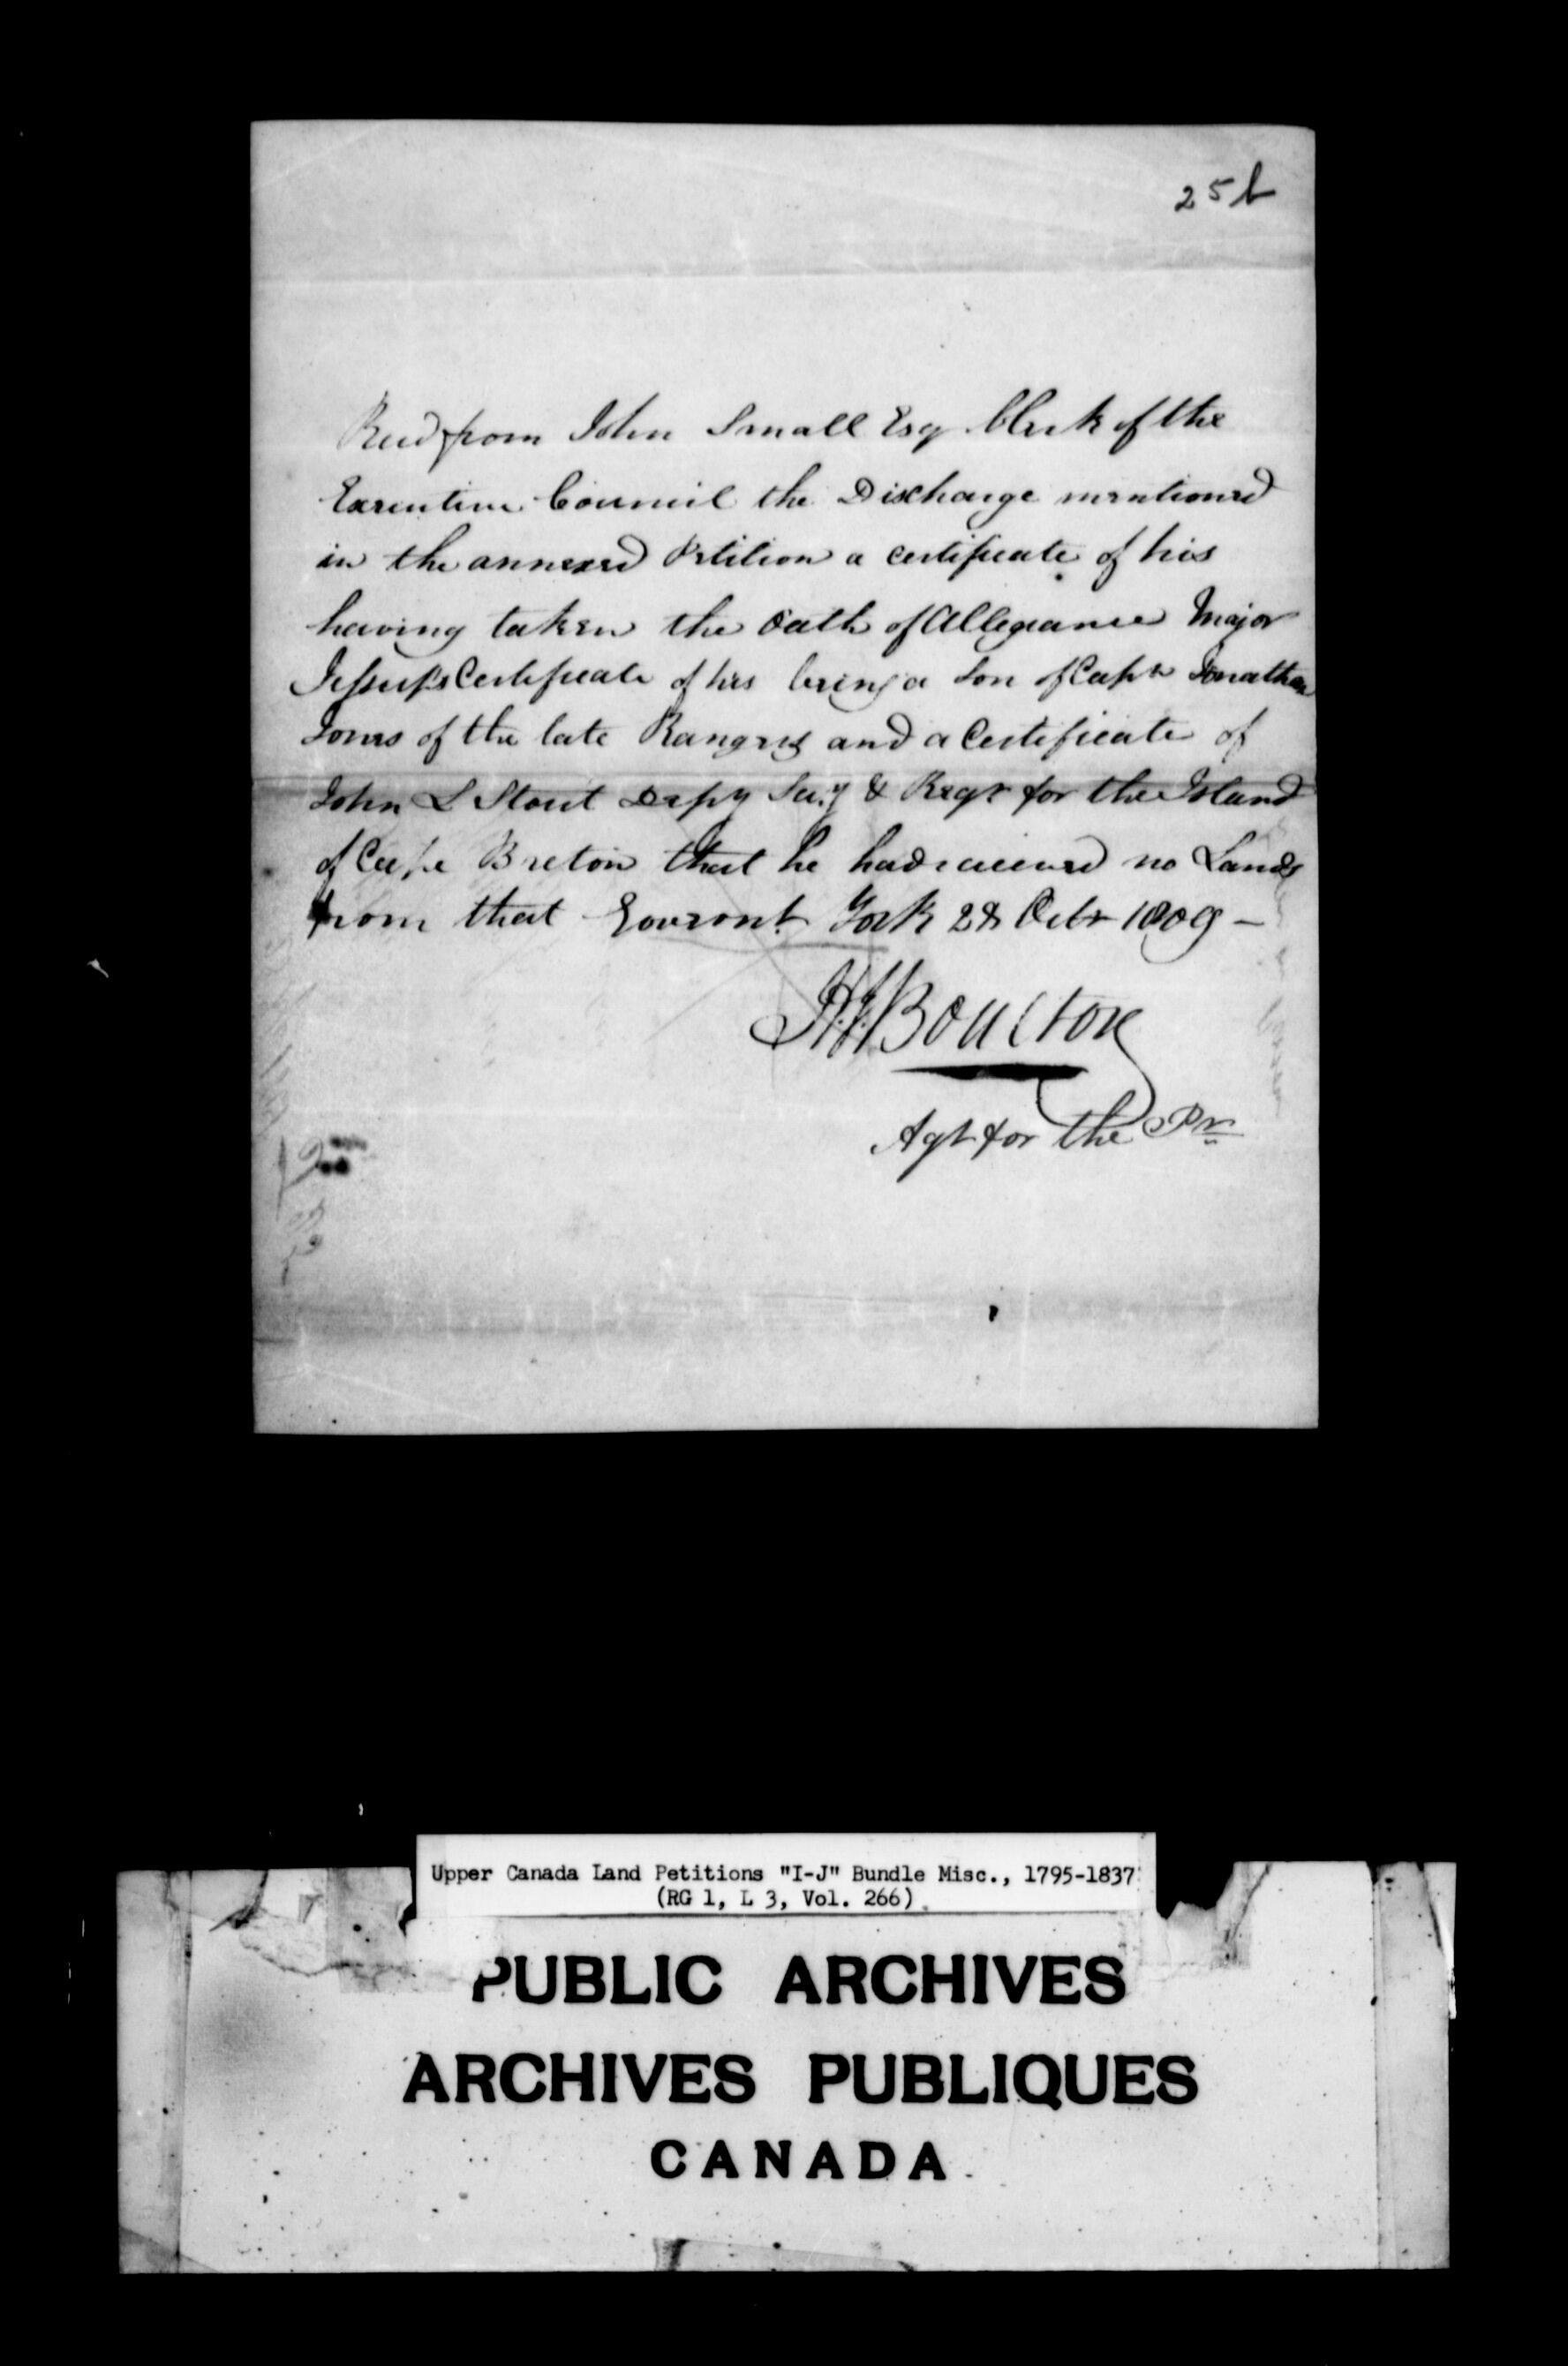 25b
Recd from John Small Esq Clerk of the
Executive Council the Discharge mentioned
in the annexed Petition a certificate of his
having taken the Oath of Allegiance Major
Jessup's Certificate of his being a Son of Capt Jonathan
Jones of the late Rangers and a Certificate of
John L Stout Depy Secy & Regr for the Island
of Cape Breton that he had received no Lands
from that Governt York 28 Octr 1809 —
Boulton
Agt for the Pr
Upper Canada Land Petitions "I-J" Bundle Misc., 1795-1837
(RG 1, L 3, Vol. 266)
PUBLIC ARCHIVES
ARCHIVES PUBLIQUES
CANADA